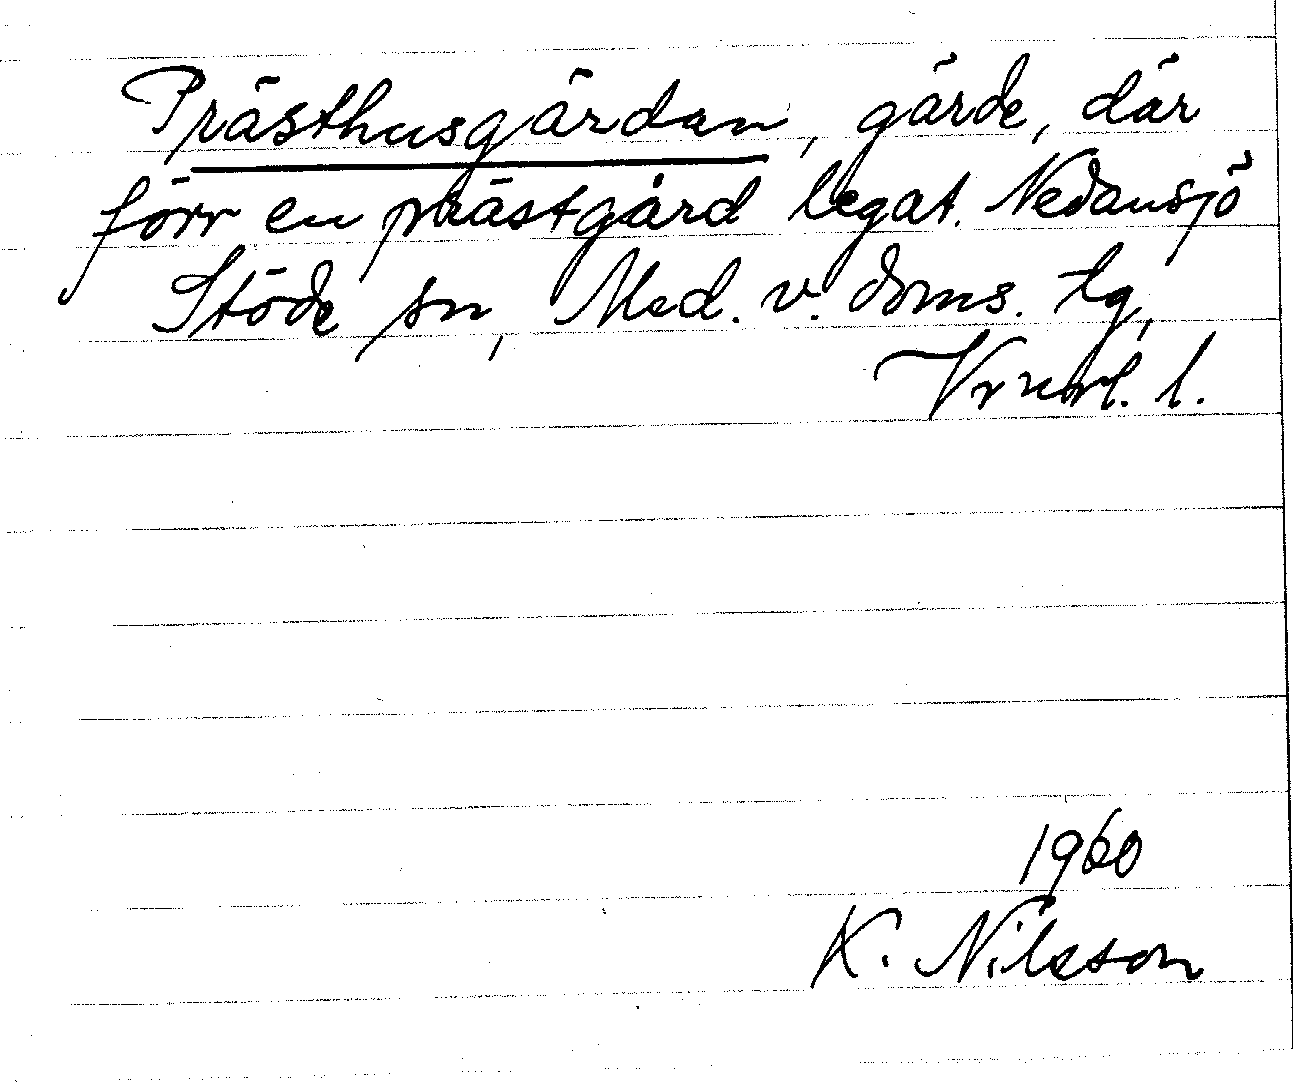 Prästhusgärdan, gärde, där
förr en prästgård legat. Nedansjö
Stöde sn, Med. v. doms. tg,
Vrnorl. l.
1960
K. Nilsson